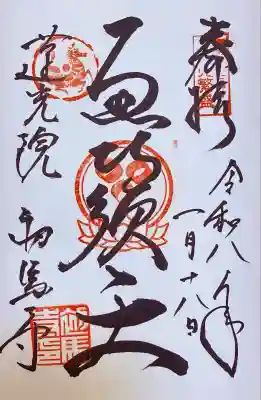 奉拝
令和八年
一月十八日
恵比須天
蓮光院
初馬寺